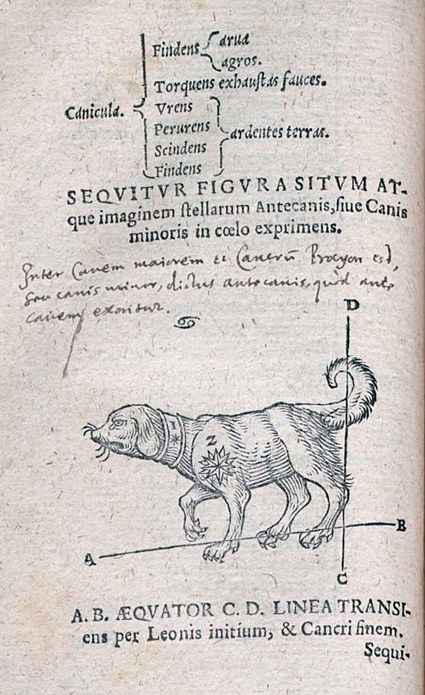 Findens { arua
agros.
Torquens exhaustas fauces.
Canicula. { Vrens
Perurens } ardentes terras.
Scindens
Findens
SEQVITVR FIGVRA SITVM AT-
que imaginem stellarum Antecanis, siue Canis
minoris in cœlo exprimens.
Inter Canem maiorem et Cancrũ Procyon est,
seu canis minor, dictus antecanis, quod ante
canem exoritur.
♋
D
Z
B
A
C
A. B. ÆQVATOR C. D. LINEA TRANSI-
ens per Leonis initium, & Cancri finem.
Sequi-